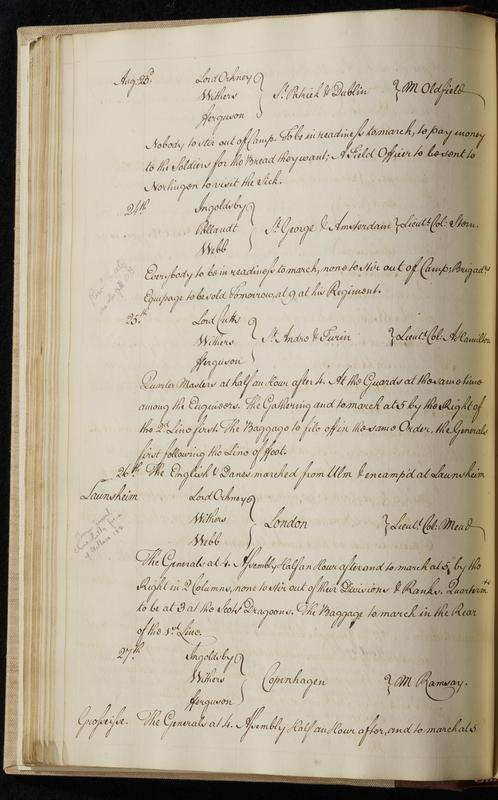 Aug: 23d Lord Orkney
Withers } St. Patrick & Dublin } M Oldfield
Ferguson
Nobody to stir out of Camp. To be in readiness to march, to pay money
to the Soldiers for the Bread they want; A Field Officer to be sent to
Norlingen to visit the Sick.
24th. Ingoldsby
Rellaudt } St. George & Amsterdam } Lieut: Col: Stern.
Webb
Everybody to be in readiness to march, none to stir out of Camp: Brigadrs
Equipage to be sold Tomorrow at 9 at his Regiment.
25th. Lord Cutts
Withers } St. Andro & Turin } Lieut: Col: A Hamilton
Ferguson
Quarter Masters at half an Hour after 4. At the Guards at the same time
among the Engineers. The Gathering and to march at 5 by the Right of
the 2d. Line first. The Baggage to file off in the same Order, the Generals
first following the Line of Foot.
26th. The English & Danes marched from Ulm & encamp'd at Launsheim
Launsheim Lord Orkney
Withers } London } Lieut: Col: Mead
Webb
The Generals at 4. Assembly Half an Hour after and to march at 5 by the
Right in 2 Columns, none to stir out of their Divisions & Ranks. Quarterm:rs
to be at 3 at the Scots Dragoons. The Baggage to march in the Rear
of the 1st. Line.
27th. Ingoldsby
Withers } Copenhagen } M Ramsay.
Ferguson
Grosseisse. The Generals at 4. Assembly Half an Hour after, and to march at 5